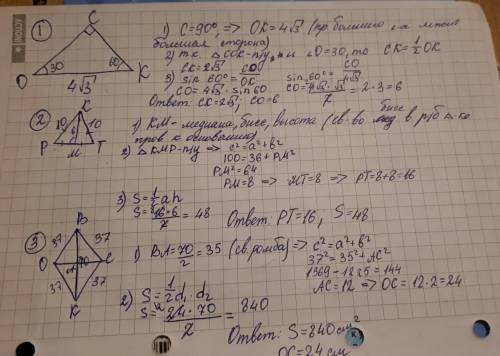 1
C
O 30 60 K
4√3
1) C=90°, => OK=4√3 (пр большего
большая сторона)
2) т.к. △COK-п/у, и ∠O=30, то CK=1/2OK
CK=2√3
3) sin 60°=CO/OK
sin 60°=CO/4√3
CO=4√3·sin60
CO=4√3·√3/2=2·3=6
Ответ: CK=2√3; CO=6
2
K
10 6 10
P M T
1) KM-медиана, бисс, высота (св-во бисс в р/б △-ке
пров к основанию)
2) △KMP-п/у => c²=a²+b²
100=36+PM²
PM²=64
PM=8 => MT=8 => PT=8+8=16
3) S=1/2ah
S=16·6/2=48
Ответ: PT=16, S=48
3
B
37 37
O A 70 C
37 37
K
1) BA=70/2=35 (св. ромба) => c²=a²+b²
37²=35²+AC²
1369-1225=144
AC=12 => OC=12·2=24
2) S=1/2d₁·d₂
S=24·70/2=840
Ответ: S=840см²
OC=24см